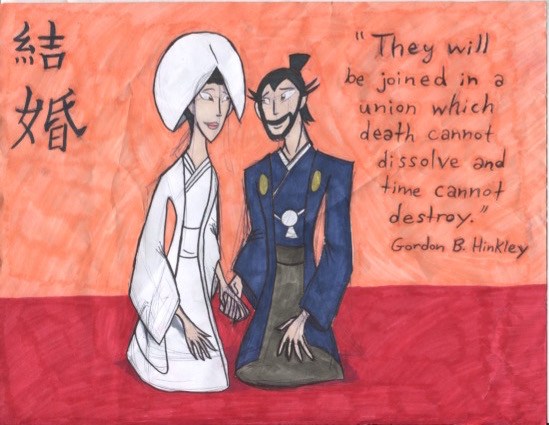 結
婚
"They will
be joined in a
union which
death cannot
dissolve and
time cannot
destroy."
Gordon B. Hinkley